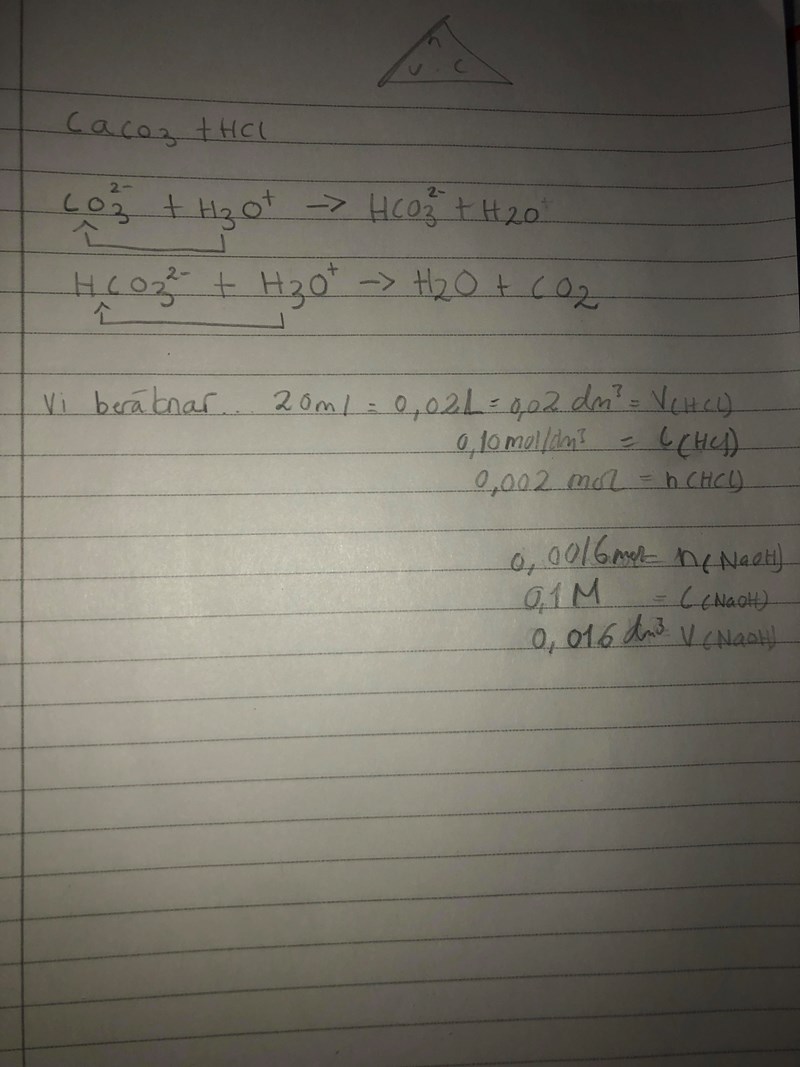 n
v . c
CaCO3 + HCl
CO3²⁻ + H3O⁺ -> HCO3²⁻ + H2O
HCO3²⁻ + H3O⁺ -> H2O + CO2
Vi beräknar.. 20ml = 0,02L = 0,02 dm³ = V(HCl)
0,10 mol/dm³ = C(HCl)
0,002 mol = n(HCl)
0,0016 mol = n(NaOH)
0,1 M = C(NaOH)
0,016 dm³ V(NaOH)